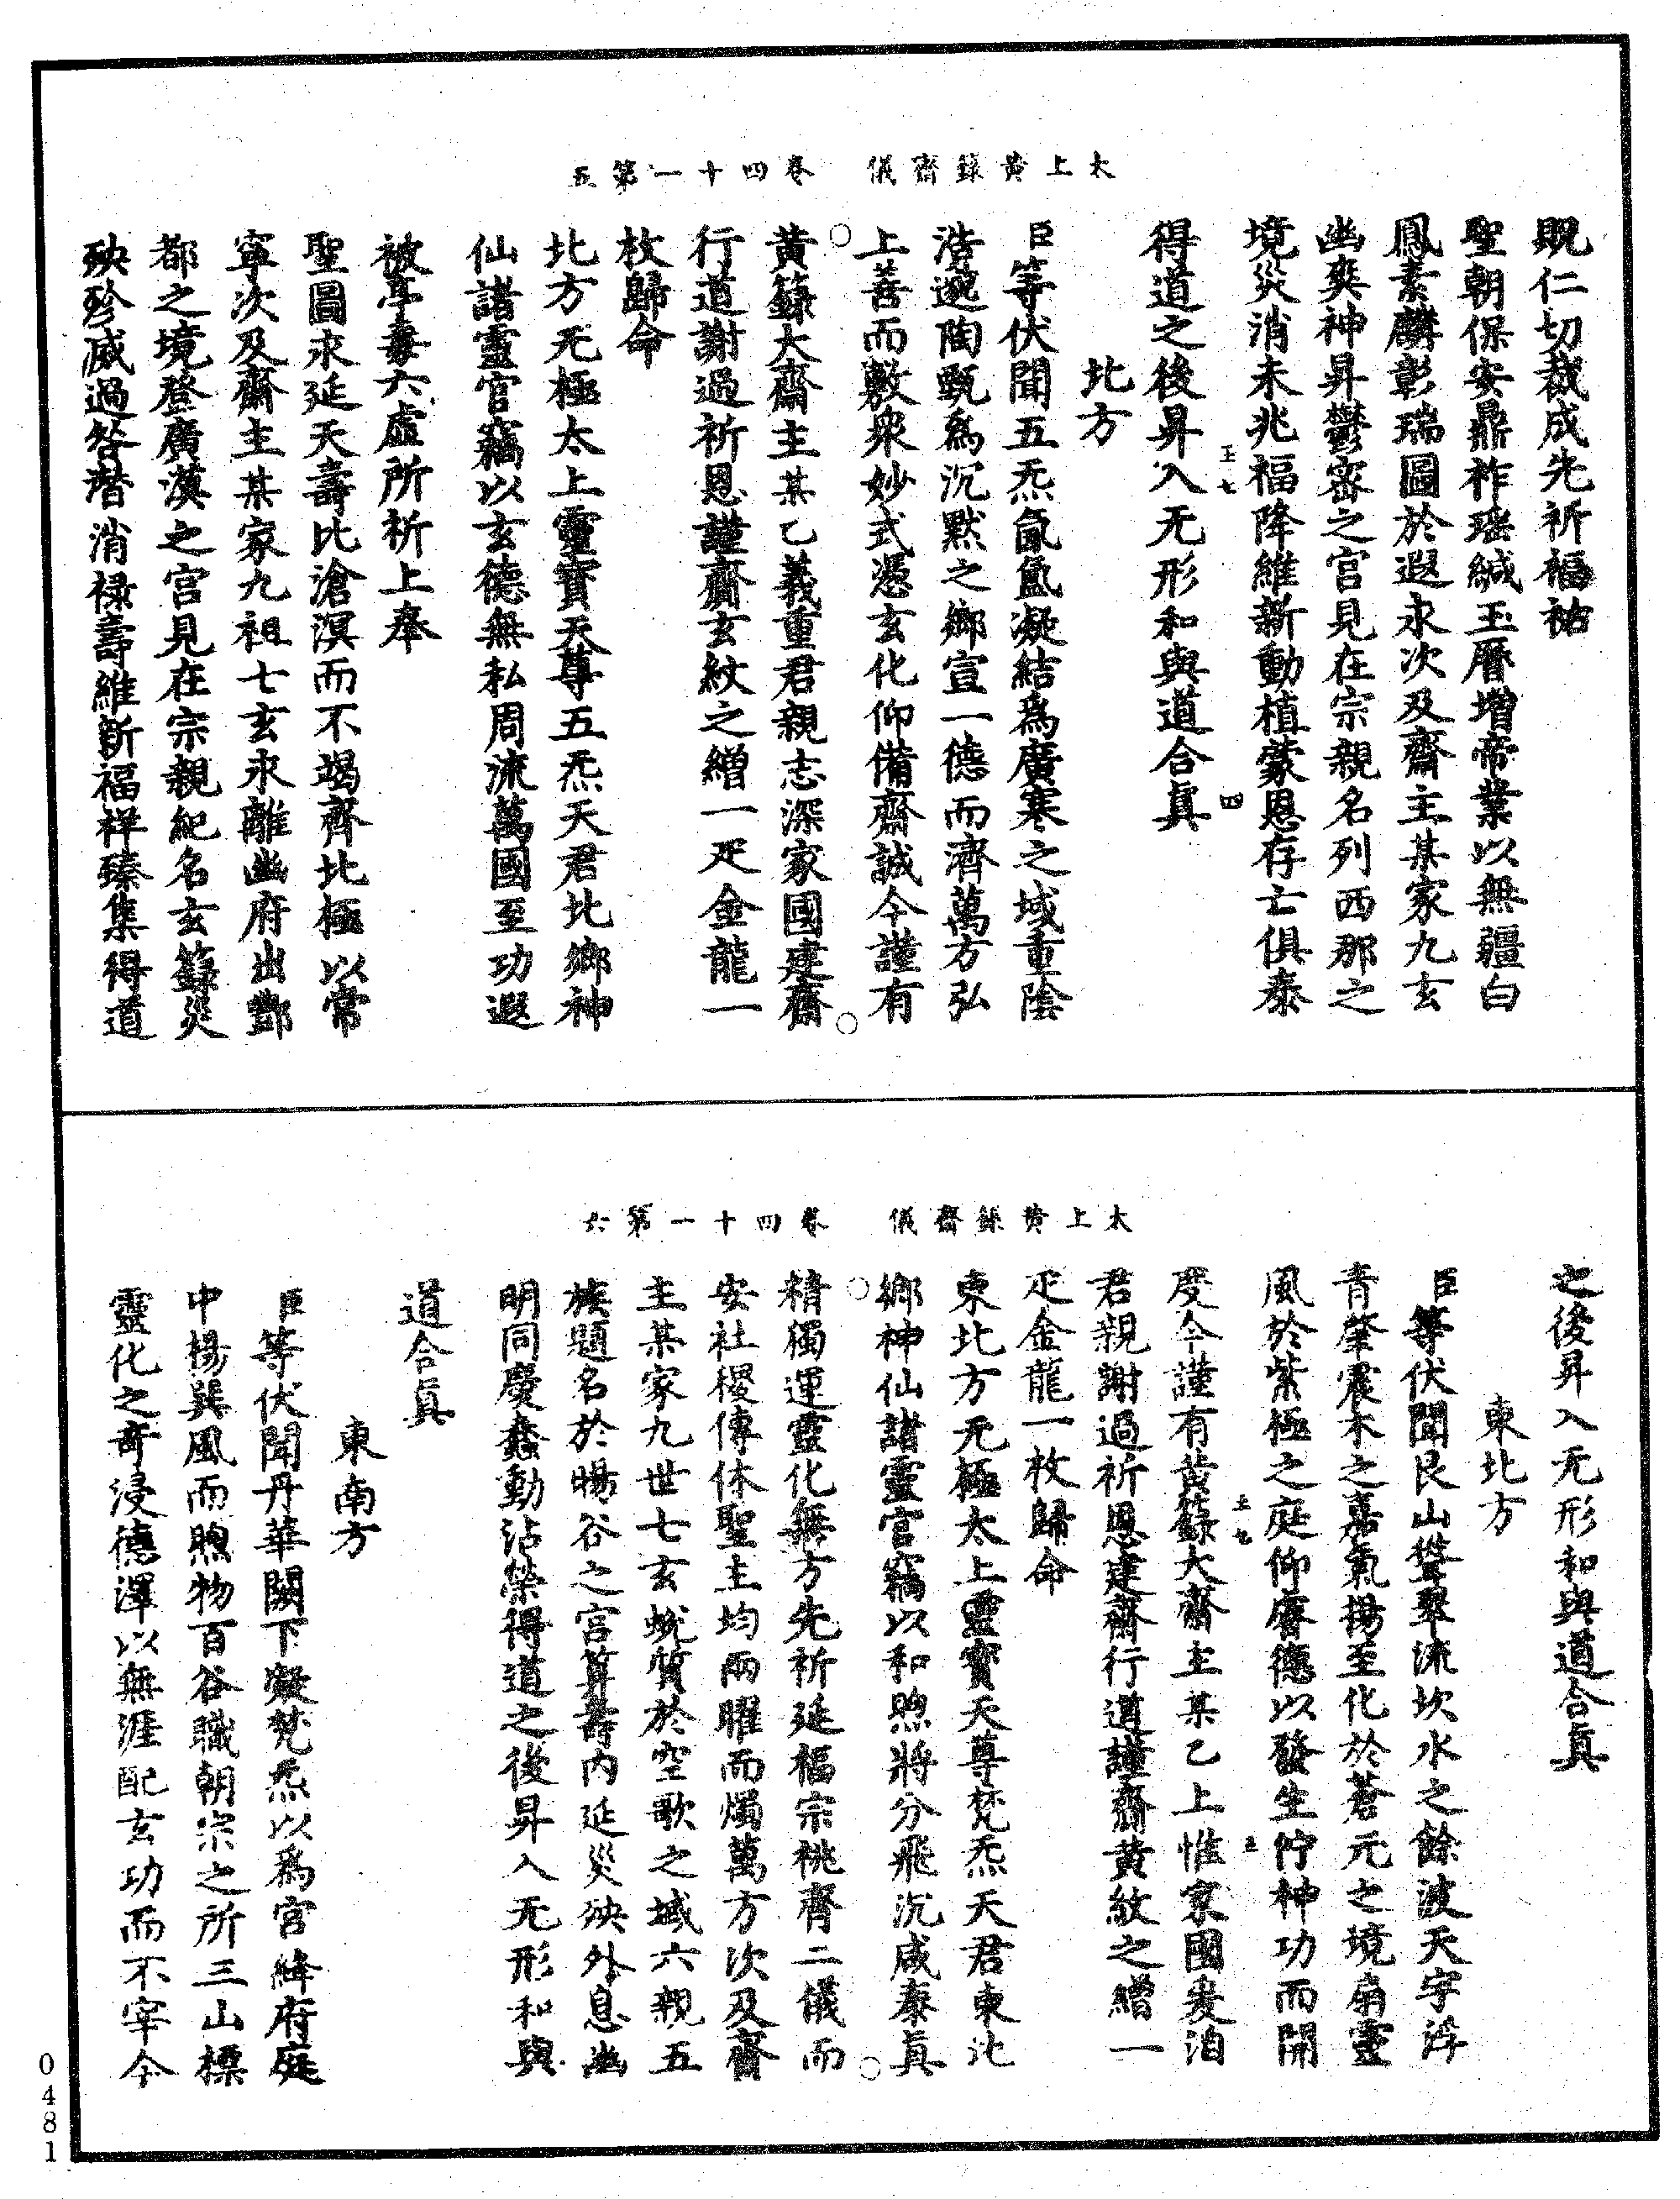 太上黃籙齋儀　卷四十一第五
貺仁切裁成先祈福祐
聖朝保安鼎祚瑤緘玉曆增帝業以無疆白
鳳素麟彰瑞圖於遐永次及齋主某家九玄
幽爽神昇鬱密之宮見在宗親名列西那之
境災消未兆福降維新動植蒙恩存亡俱泰
得道之後昇入无形和與道合眞
北方
臣等伏聞五炁氤氳凝結爲廣寒之域重陰
浩邈陶甄爲沉默之鄉宣一德而濟萬方弘
上善而敷衆妙式憑玄化仰備齋誠今謹有
黃籙大齋主某乙義重君親志深家國建齋
行道謝過祈恩謹齎玄紋之繒一疋金龍一
枚歸命
北方无極太上靈寶天尊五炁天君北鄉神
仙諸靈官竊以玄德無私周流萬國至功遐
被亭毒六虛所祈上奉
聖圖永延天壽比滄溟而不竭齊北極以常
寧次及齋主某家九祖七玄永離幽府出酆
都之境登廣漢之宮見在宗親紀名玄籙災
殃殄滅過咎潛消祿壽維新福祥臻集得道
太上黃籙齋儀　卷四十一第六
之後昇入无形和與道合眞
東北方
臣等伏聞艮山聳翠流坎水之餘波天宇浮
青肇震木之嘉氣揚至化於蒼元之境扇靈
風於紫極之庭仰睿德以發生佇神功而開
度今謹有黃籙大齋主某乙上惟家國爰洎
君親謝過祈恩建齋行道謹齎黃紋之繒一
疋金龍一枚歸命
東北方无極太上靈寶天尊梵炁天君東北
鄉神仙諸靈官竊以和煦將分飛沉咸泰眞
精獨運靈化無方先祈延福宗祧齊二儀而
安社稷傳休聖主均兩曜而燭萬方次及齋
主某家九世七玄蛻質於空歌之域六親五
族題名於暘谷之宮算壽內延災殃外息幽
明同慶蠢動沾榮得道之後昇入无形和與
道合眞
東南方
臣等伏聞丹華闕下凝梵炁以爲宮絳府庭
中揚巽風而煦物百谷職朝宗之所三山標
靈化之奇浸德澤以無涯配玄功而不宰今
王七　四
王七　五
0481